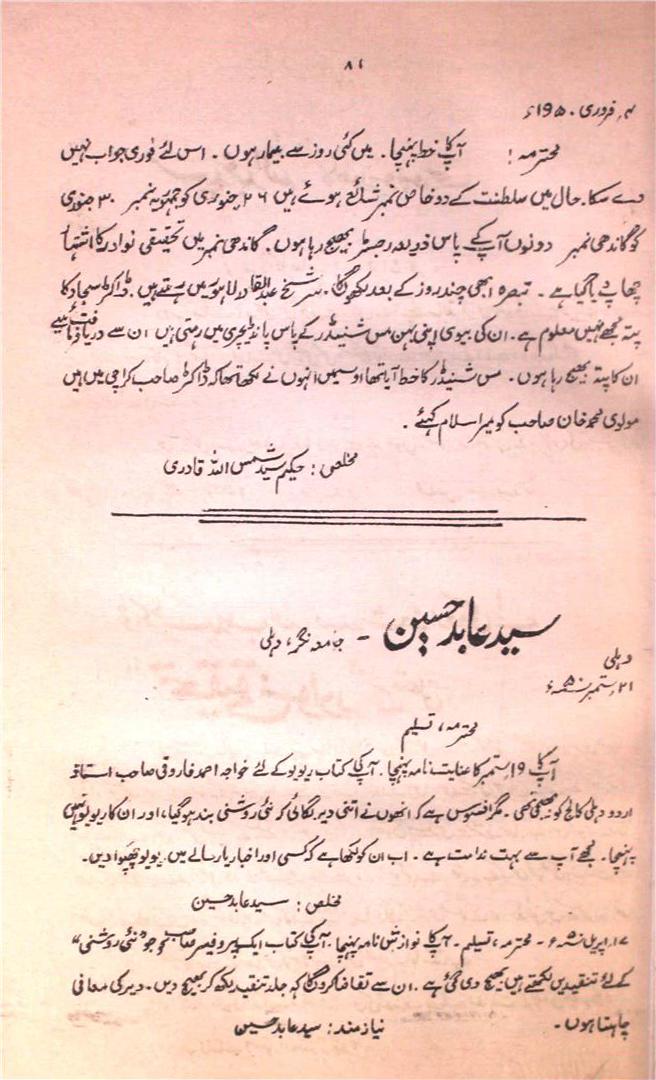 ۸۶
۴ فروری ۱۹۵۰ء
محترمہ! آپ کا خط پہنچا۔ میں کئی روز سے بیمار ہوں۔ اس لئے فوری جواب نہیں
دے سکا۔ حال میں سلطنت کے دو خاص نمبر شائع ہوئے ہیں ۲۶ جنوری کو جمہوریہ نمبر ۳۰ جنوری
کو گاندھی نمبر دونوں آپ کے پاس ذریعہ رجسٹر بھیج رہا ہوں۔ گاندھی نمبر میں تحقیقی نوادر کا اشتہار
چھاپ دیا گیا ہے۔ تبصرہ ابھی چند روز کے بعد لکھوں گا۔ سر شیخ عبدالقادر لاہور میں رہتے ہیں۔ ڈاکٹر سجاد کا
پتہ مجھے نہیں معلوم ہے۔ ان کی بیوی اپنی بہن مس شنیڈر کے پاس پانڈیچری میں رہتی ہیں ان سے دریافت فرمائیے
ان کا پتہ بھیج رہا ہوں۔ مس شنیڈر کا خط آیا تھا اوسمیں انہوں نے لکھا تھا کہ ڈاکٹر صاحب کراچی میں ہیں
مولوی محمد خان صاحب کو میرا سلام کہئے۔
مخلص: حکیم سید شمس اللہ قادری
سید عابد حسین - جامعہ نگر، دہلی
دہلی
۲۱ ستمبر ۵۰ء
محترمہ، تسلیم
آپ کا ۱۹ ستمبر کا عنایت نامہ پہنچا۔ آپ کی کتاب ریویو کے لئے خواجہ احمد فاروقی صاحب استاد
اردو دہلی کالج کو بھیجی تھی۔ مگر افسوس ہے کہ انھوں نے اتنی دیر لگائی کہ نئی روشنی بند ہو گیا، اور ان کا ریویو نہیں
پہنچا۔ مجھے آپ سے بہت ندامت ہے۔ اب ان کو لکھا ہے کہ کسی اور اخبار یا رسالے میں ریویو چھپوا دیں۔
مخلص: سید عابد حسین
۱۷ اپریل ۵۰ء۔ محترمہ، تسلیم۔ آپ کا نوازش نامہ پہنچا۔ آپ کی کتاب ایک پروفیسر صاحب کو جو "نئی روشنی"
کے لئے تنقیدیں لکھتے ہیں بھیج دی گئی ہے۔ ان سے تقاضا کروں گا کہ جلد تنقید لکھ کر بھیج دیں۔ دیر کی معافی
چاہتا ہوں۔ نیازمند: سید عابد حسین